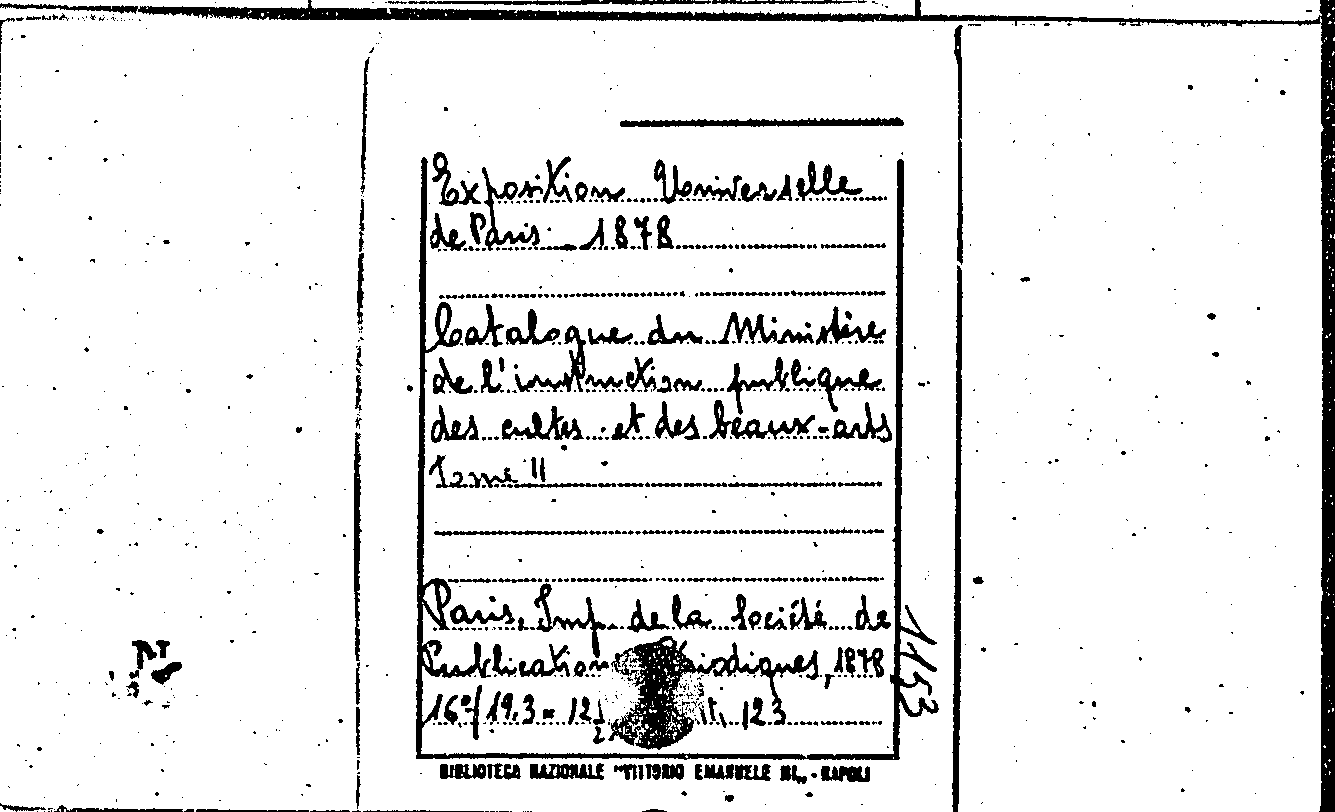 Exposition Universelle
de Paris - 1878
Catalogue du Ministère
de l'instruction publique
des cultes et des beaux-arts
Tome II
Paris, Imp. de la Société de
Publication 1878
16º/ 19.3 × 12 123
1153
BIBLIOTECA NAZIONALE "VITTORIO EMANUELE III„ - NAPOLI